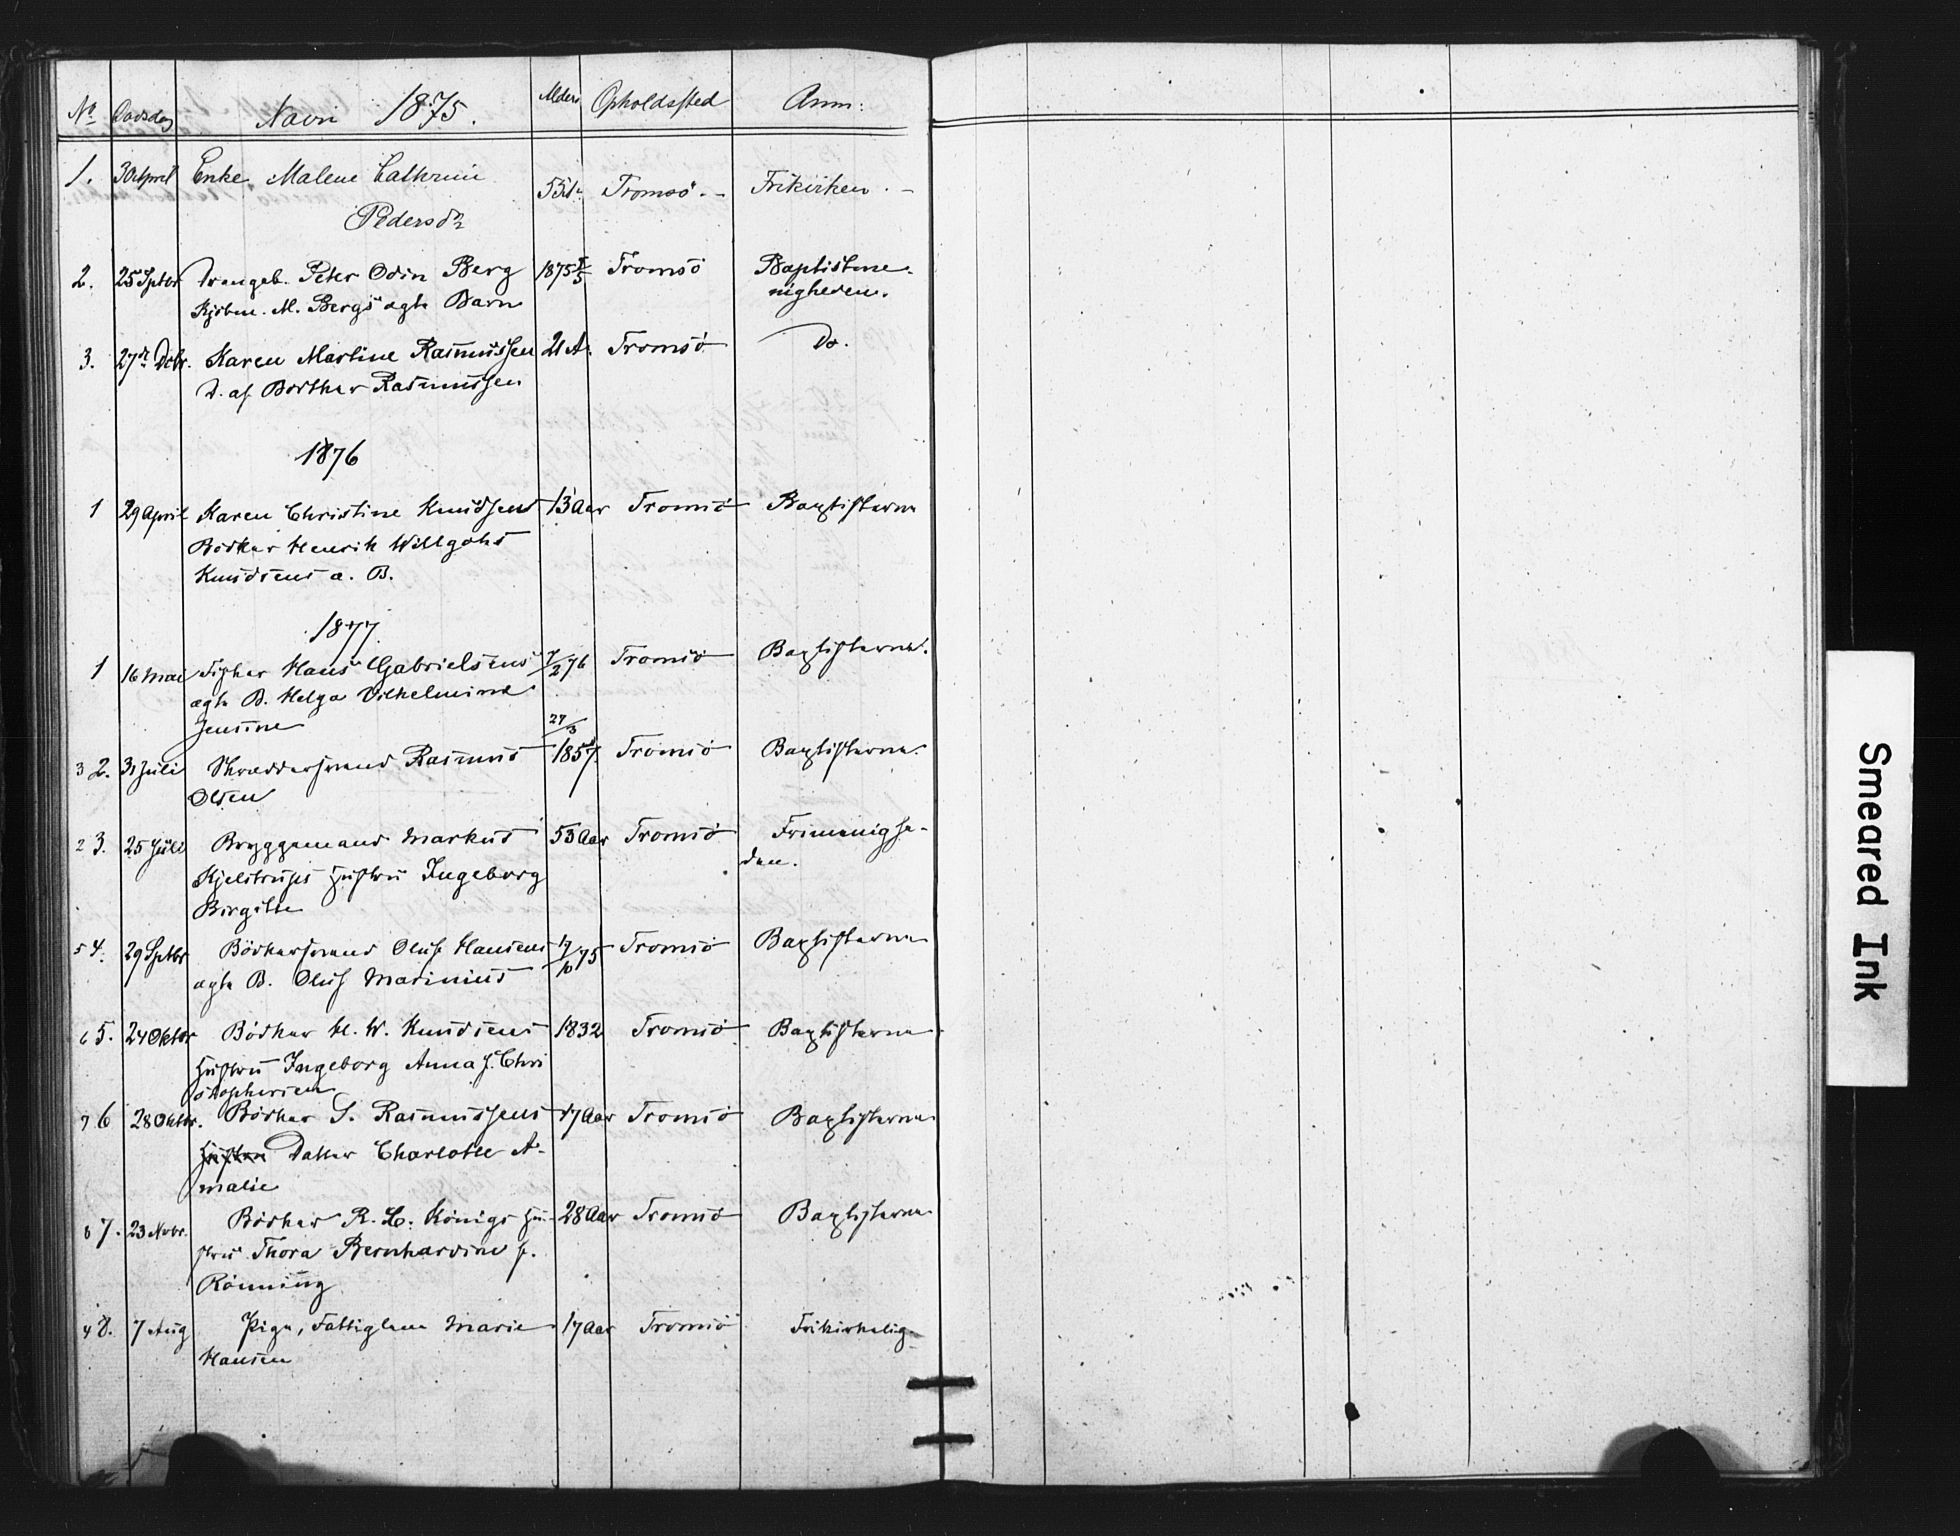 No Dødsdag Navn 1875. Alder Opholdssted Anm:
1. 30 April Enke Malene Cathrine 55 A. Tromsö. - Frikirken. -
Pedersdr
2. 25 Sptbr Drengeb. Peter Odin Berg 1875 Tromsö Baptistme-
Kjöbm. M. Bergs ægte Barn nigheden.
3. 27de Dcbr. Karen Martine Rasmussen 21 A. Tromsö Do.
D. af Bödker Rasmussen
1876
1 29 April Karen Christine Knudsen 13 Aar Tromsö Baptisterne
Bödker Henrik Willgohs
Knudsens æ. B.
1877.
1 16 Mai Fisker Hans Gabrielsens 7/2 76 Tromsö Baptisterne.
ægte B. Helga Vilhelmine
Jensine
27/3
3 2. 31 Juli Skrædersvend Rasmus 1857 Tromsö Baptisterne.
Olsen
2 3. 25 Juli Bryggemand Markus 53 Aar Tromsö Frimenighe-
Kjelstrups Hustru Ingeborg den.
Birgitte
5 4. 29 Sptbr Bödkersvend Oluf Hansens 17/10 75 Tromsö Baptisterne
ægte B. Oluf Marinius
6 5. 24 Oktbr Bödker H. W. Knudsens 1832 Tromsö Baptisterne
Hustru Ingeborg Anna f. Chri
stophersen
7 6 28 Oktbr. Bödker S. Rasmussens 17 Aar Tromsö Baptisterne
Hustru Datter Charlotte A-
malie
8 7. 23 Novbr. Bödker R. L. Königs Hu- 28 Aar Tromsö Baptisterne
stru Thora Bernhardine f.
Rönning
4 8. 7 Aug Pige, Fattiglem Marie 17 Aar Tromsö Frikirkelig
Hansen
Smeared Ink